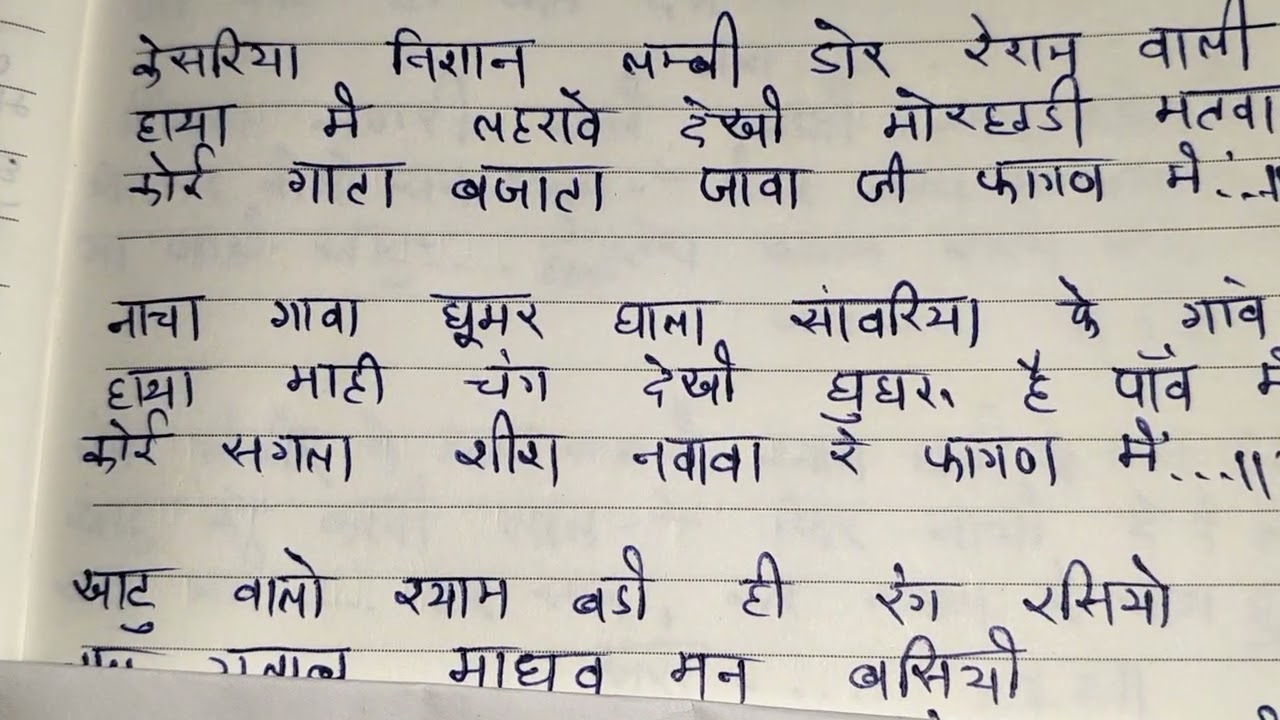 केसरिया निशान लम्बी डोर रेशम वाली
हाथा मे लहरावे देखो मोरछडी मतवा
कोई गाता बजाता जावा जी फागण मे...॥
नाचा गावा घूमर घाला सांवरिया के गावे
हाथा माही चंग देखो घुघरू है पाँव में
कोई सगला शीश नवावा रे फागण में...॥
खाटु वालो श्याम बडो ही रंग रसियो
माधव मन बसियो